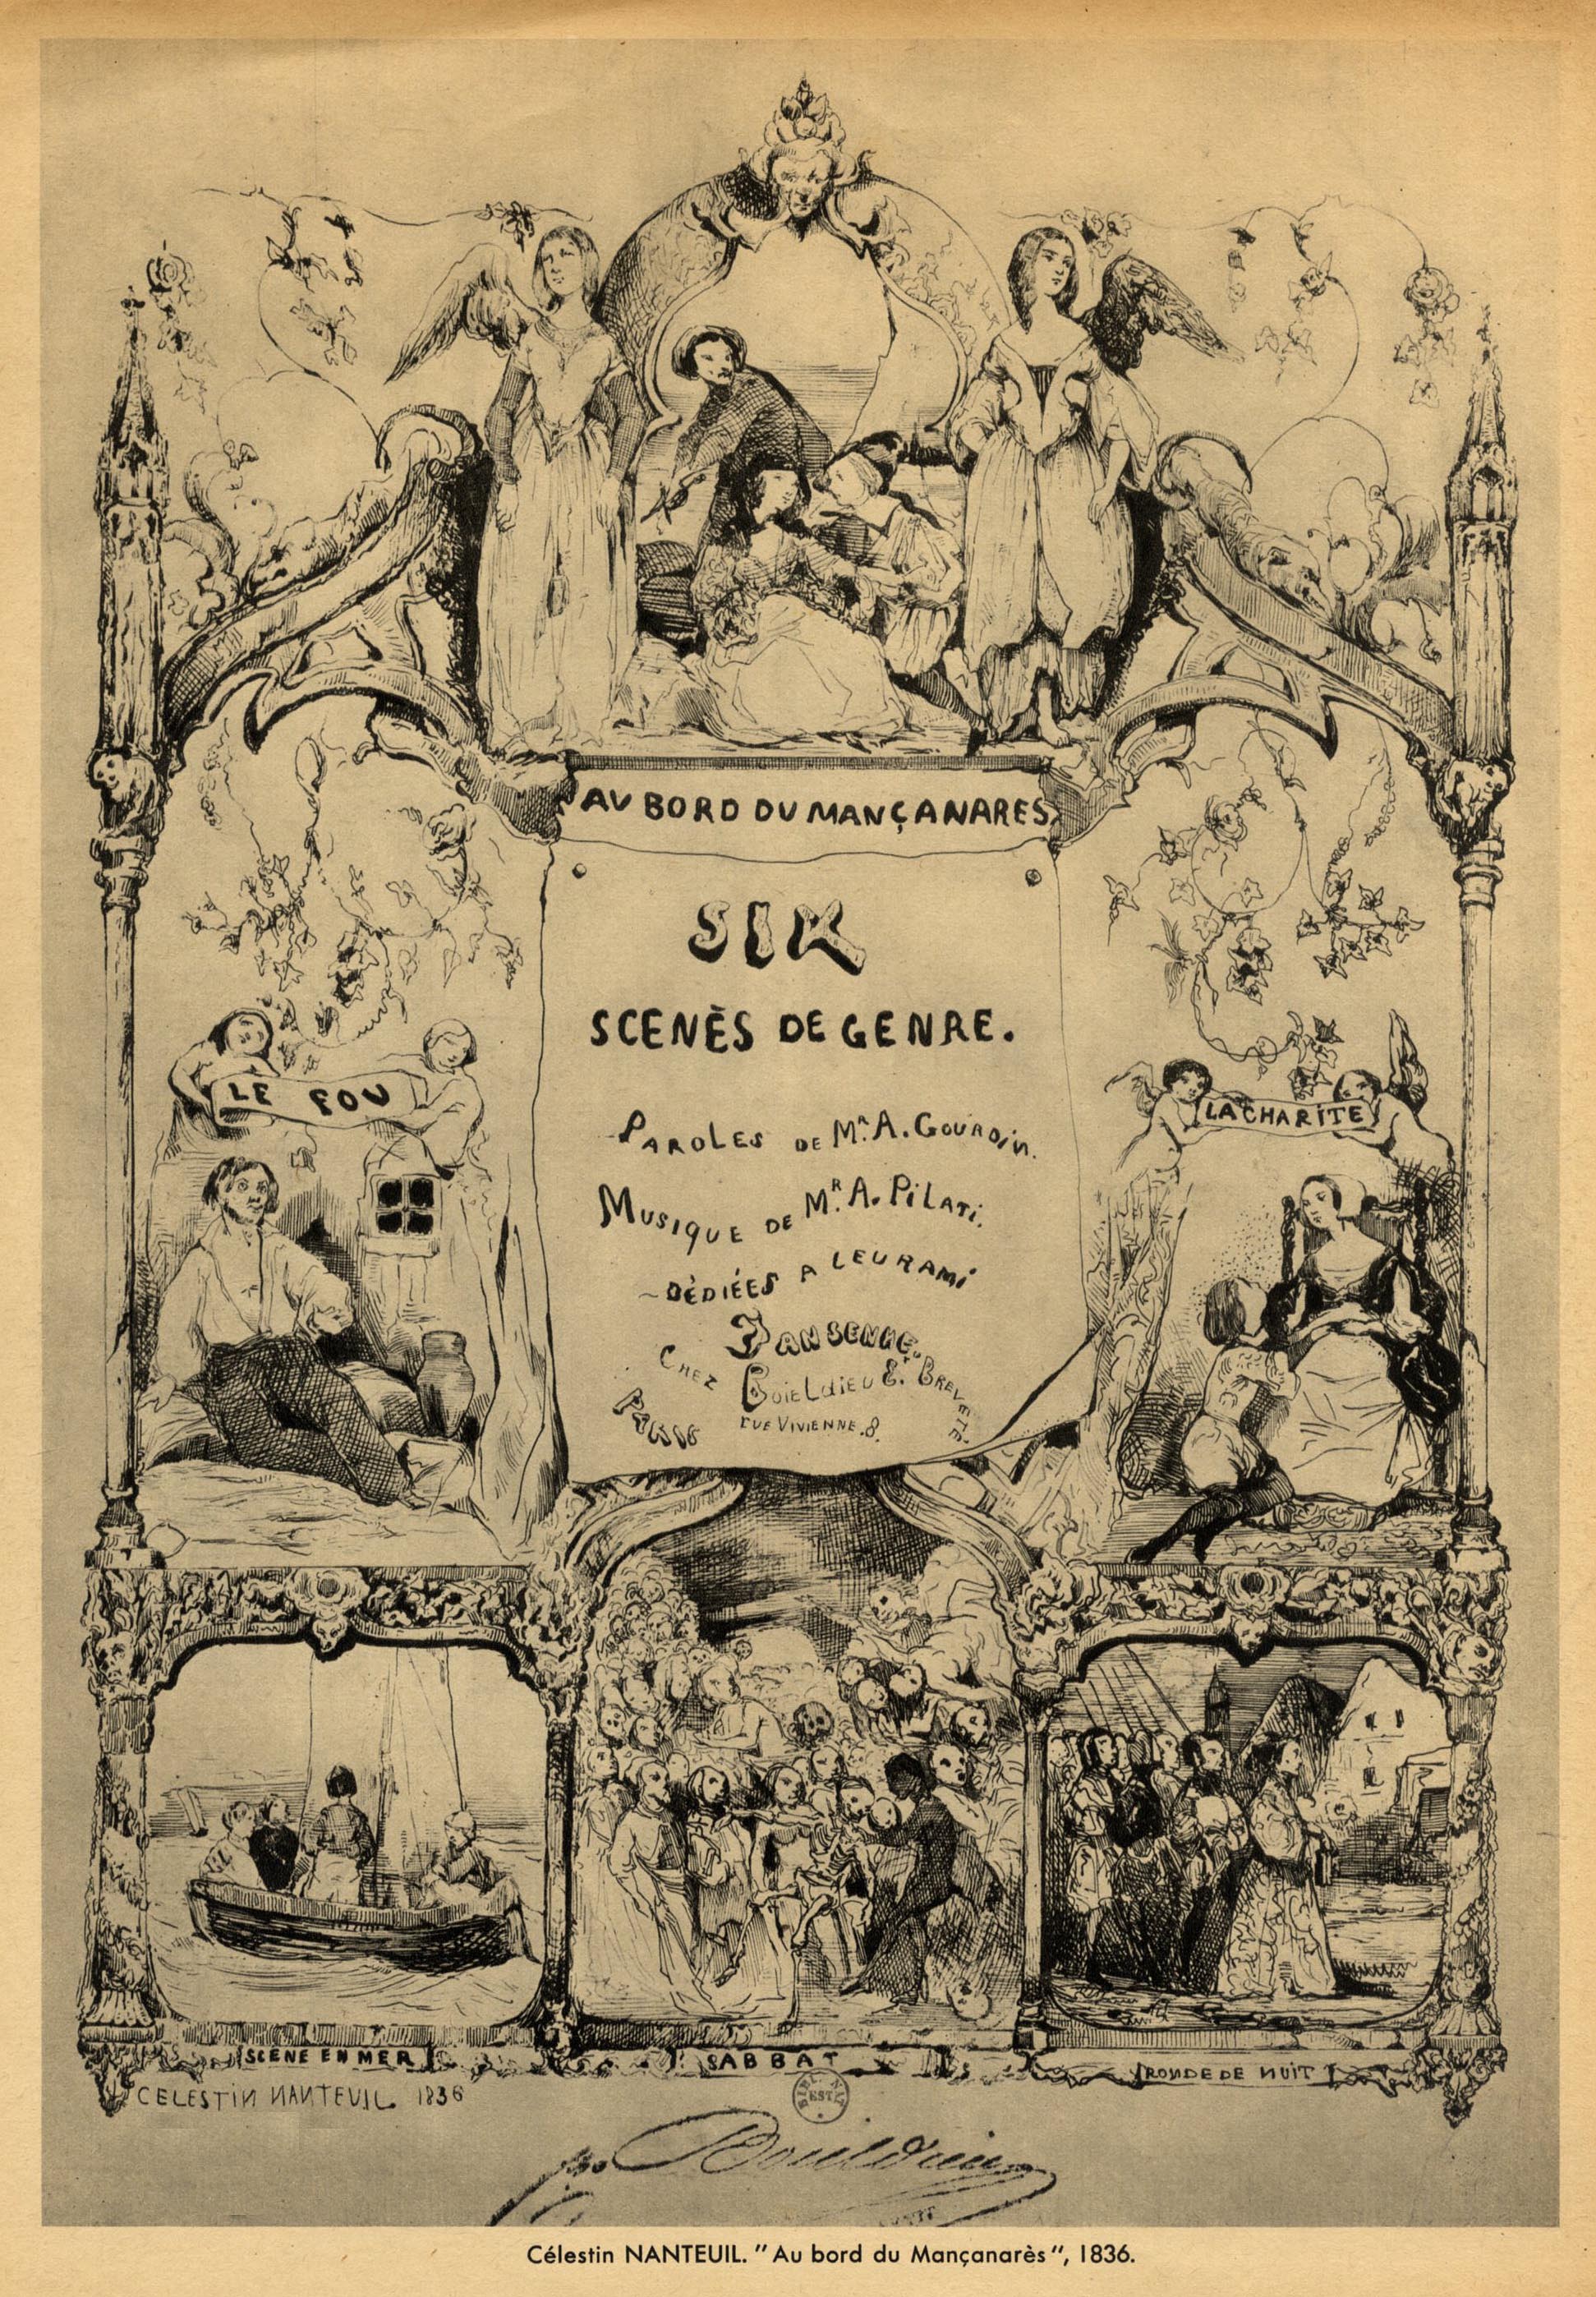 AU BORD DU MANÇANARES
SIX
SCENÈS DE GENRE.
PAROLES DE Mr. A. GOURDIN.
MUSIQUE DE Mr. A. PILATI.
DÉDIÉES A LEUR AMI
JANSENNE.
CHEZ BOIELDIEU Er. BREVETÉ.
PARIS RUE VIVIENNE. 8.
LE FOU
LA CHARITE
SCENE EN MER
SABBAT
RONDE DE NUIT
CELESTIN NANTEUIL 1836
EST
Boieldieu
Célestin NANTEUIL. "Au bord du Mançanarès", 1836.